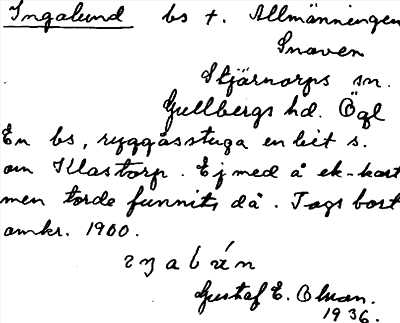 Ingalund bs t. Allmänningen
Snaven
Stjärnorps sn.
Gullbergs hd. Ögl
En bs, ryggåsstuga en bit s.
om Klastorp. Ej med å ek-kart
men torde funnits då. Togs bort
omkr. 1900.
Gustaf E. Olson.
1936.